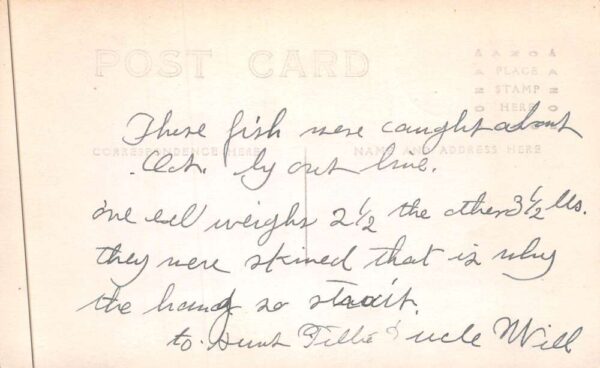 POST CARD
AZO
PLACE
STAMP
HERE
These fish were caught about
CORRESPONDENCE HERE
NAME AND ADDRESS HERE
Oct. by out line.
one eel weighs 2 1/2 the other 3 1/2 lbs.
they were skined that is why
the hang so
to Aunt Tillie & Uncle Will